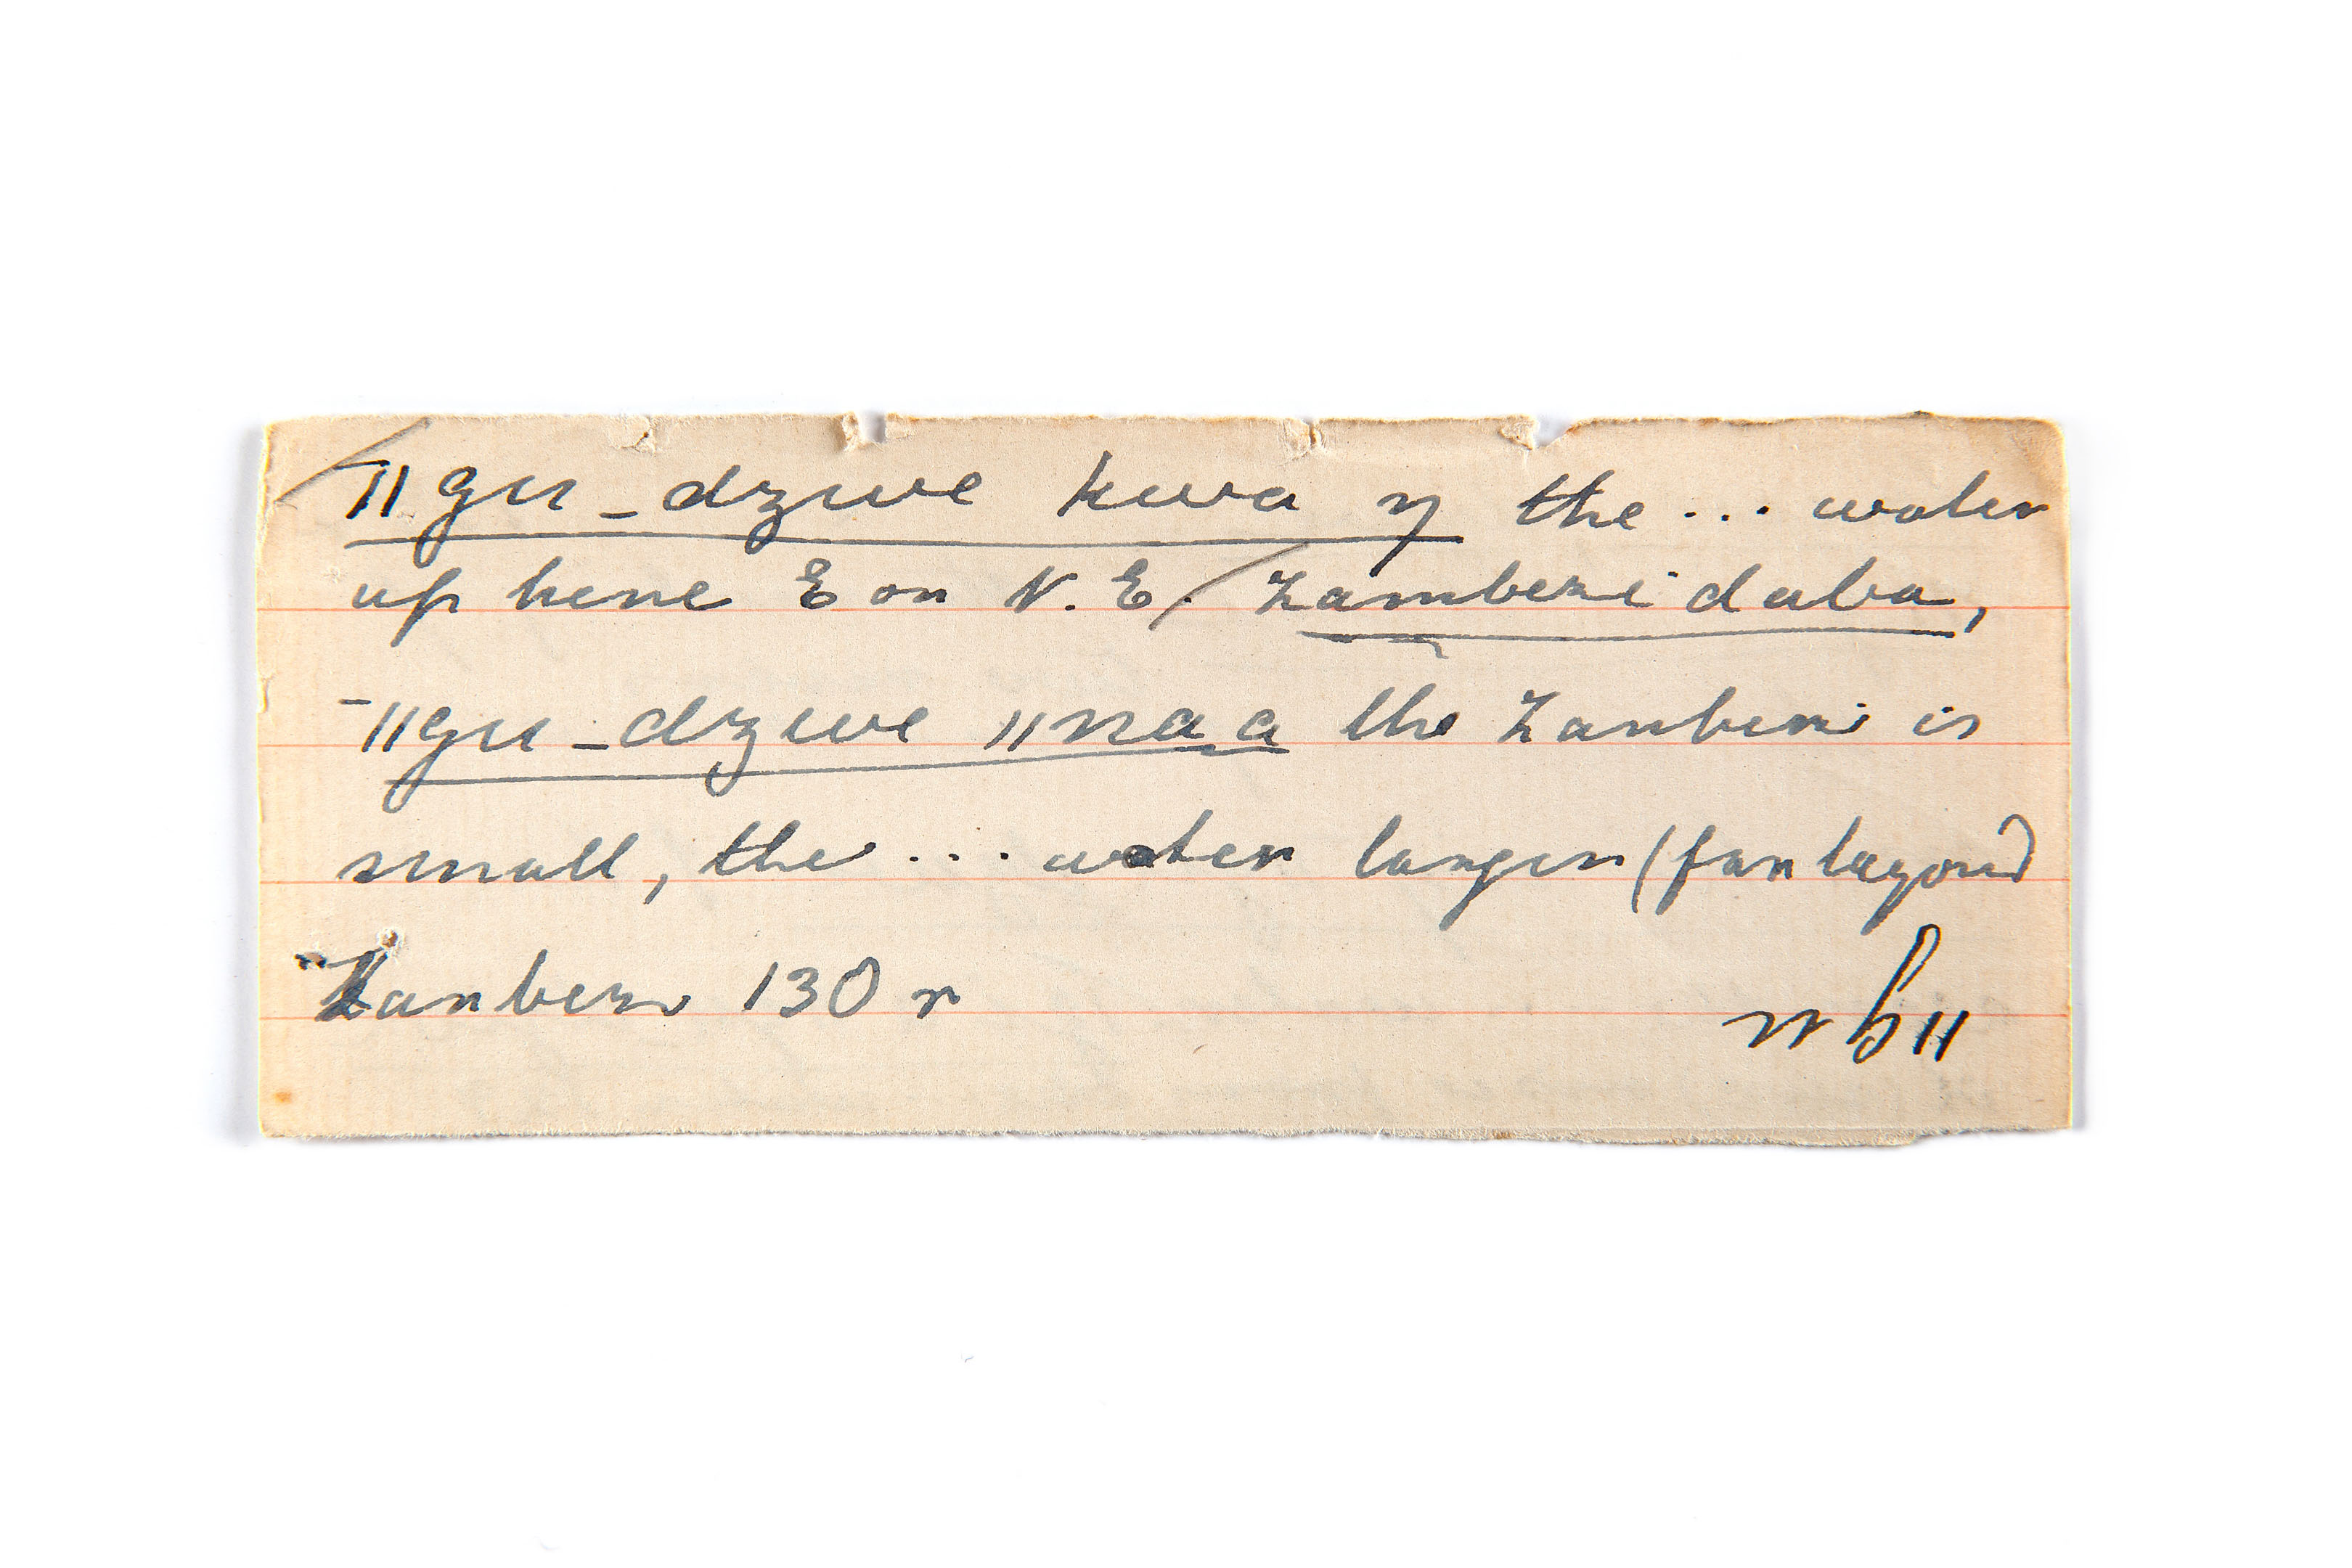 ǁgu_dzwe kwa ŋ the ... water
up here E or N.E. Zambezi daba,
ǁgu_dzwe ǁnaa the Zambezi is
small, the ... water larger (far beyond)
Zambezi 130 r
ǁgu